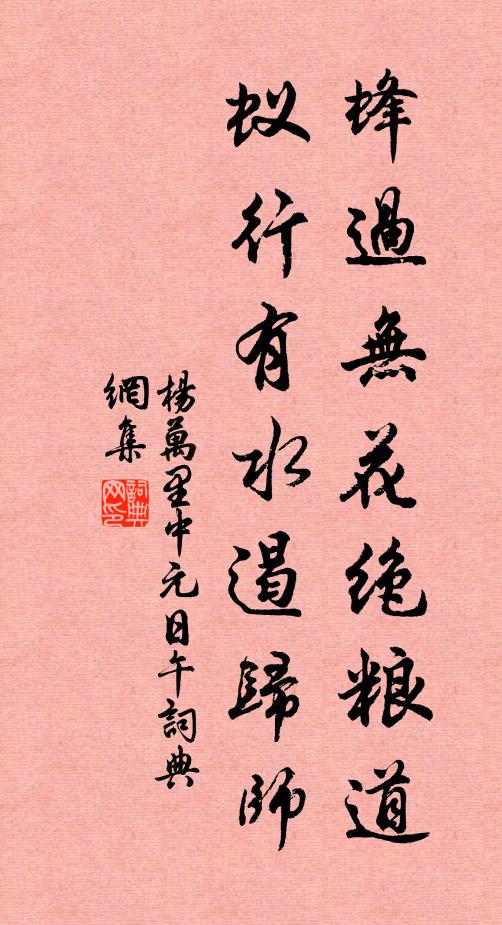 蜂過無花绝粮道
蚁行有水遏歸師
楊萬里中元日午詞典
網集
詞典網印